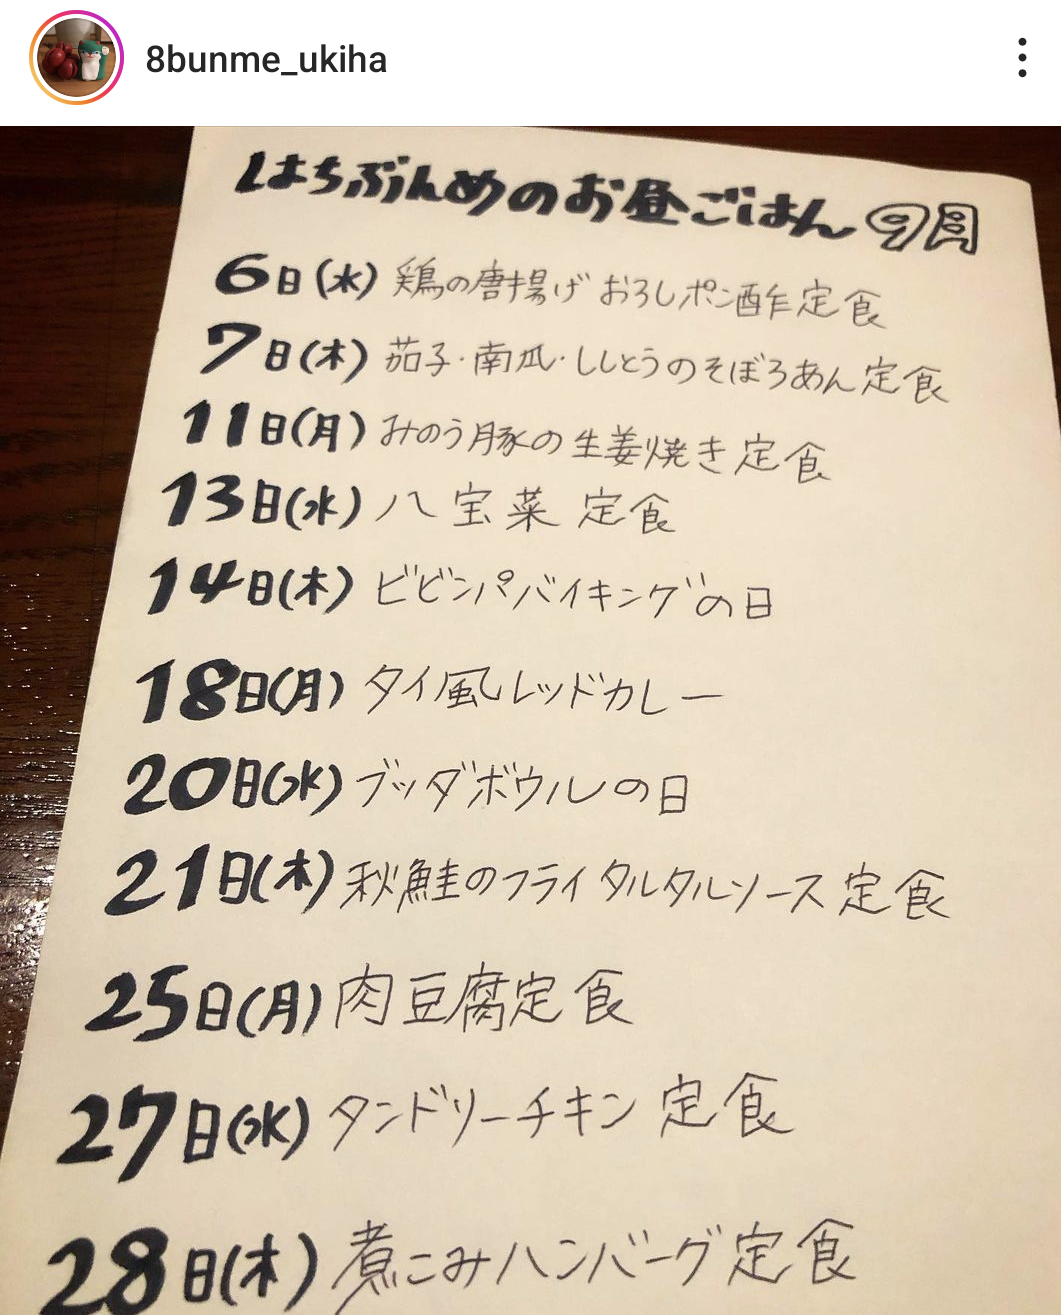 8bunme_ukiha
はちぶんめのお昼ごはん 9月
6日(水) 鶏の唐揚げ おろしポン酢定食
7日(木) 茄子・南瓜・ししとうのそぼろあん定食
11日(月) みのう豚の生姜焼き定食
13日(水) 八宝菜 定食
14日(木) ビビンパバイキングの日
18日(月) タイ風レッドカレー
20日(水) ブッダボウルの日
21日(木) 秋鮭のフライ タルタルソース定食
25日(月) 肉豆腐定食
27日(水) タンドリーチキン 定食
28日(木) 煮こみハンバーグ定食